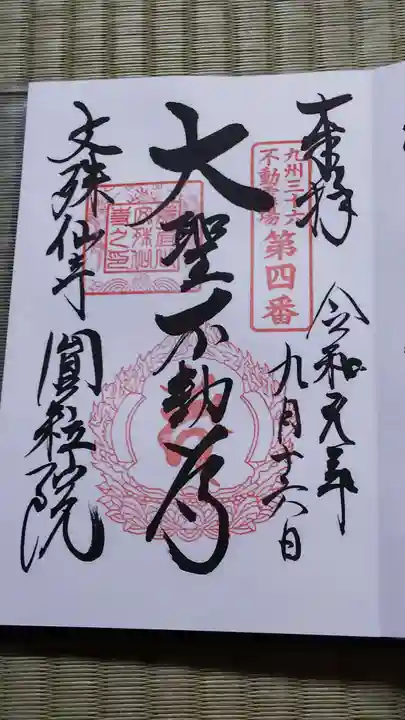 奉拝
九州三十六
不動霊場
第四番
令和元年
九月十六日
大聖不動尊
文殊仙寺
圓粒院